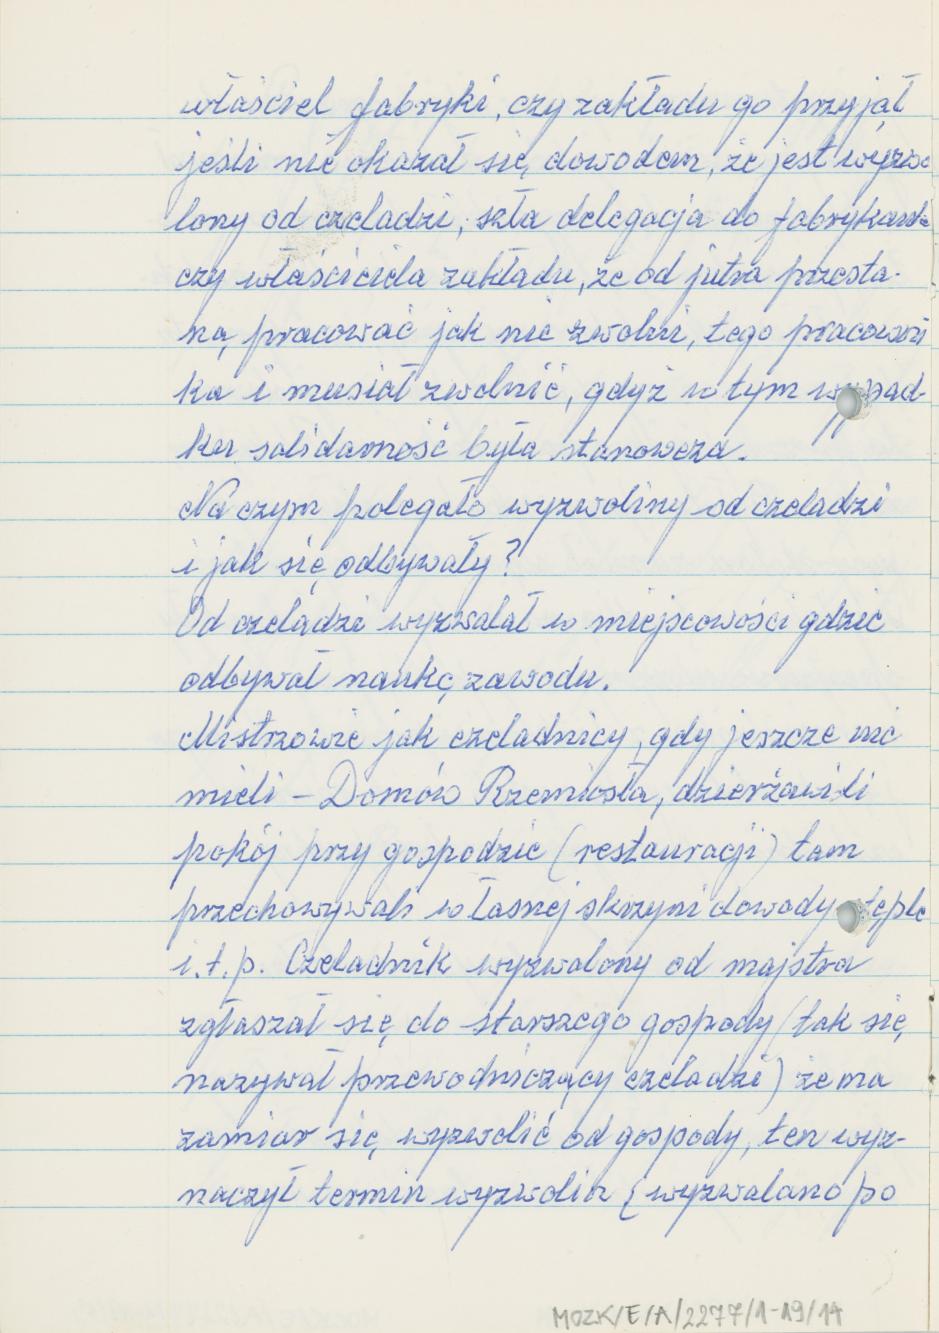 właściel fabryki, czy zakładu go przyjął
jeśli nie okazał się dowodem, że jest wyzwo
lony od czeladzi, szła delegacja do fabrykanta
czy właściciela zakładu, że od jutra przesta-
ną pracować jak nie zwolni, tego pracowni
ka i musiał zwolnić, gdyż w tym wypad-
ku solidarność była stanowcza.
Na czym polegało wyzwoliny od czeladzi
i jak się odbywały?
Od czeladzi wyzwalał w miejscowości gdzie
odbywał naukę zawodu.
Mistrzowie jak czeladnicy, gdy jeszcze nie
mieli – Domów Rzemiosła, dzierżawili
pokój przy gospodzie (restauracji) tam
przechowywali własnej skrzyni dowody
i.t.p. Czeladnik wyzwalony od majstra
zgłaszał się do starszego gospody (tak się
nazywał przewodniczący czeladzi) że ma
zamiar się wyzwolić od gospody, ten wyz-
naczył termin wyzwolin (wyzwalano po
MOZK/E/A/2277/1-19/14